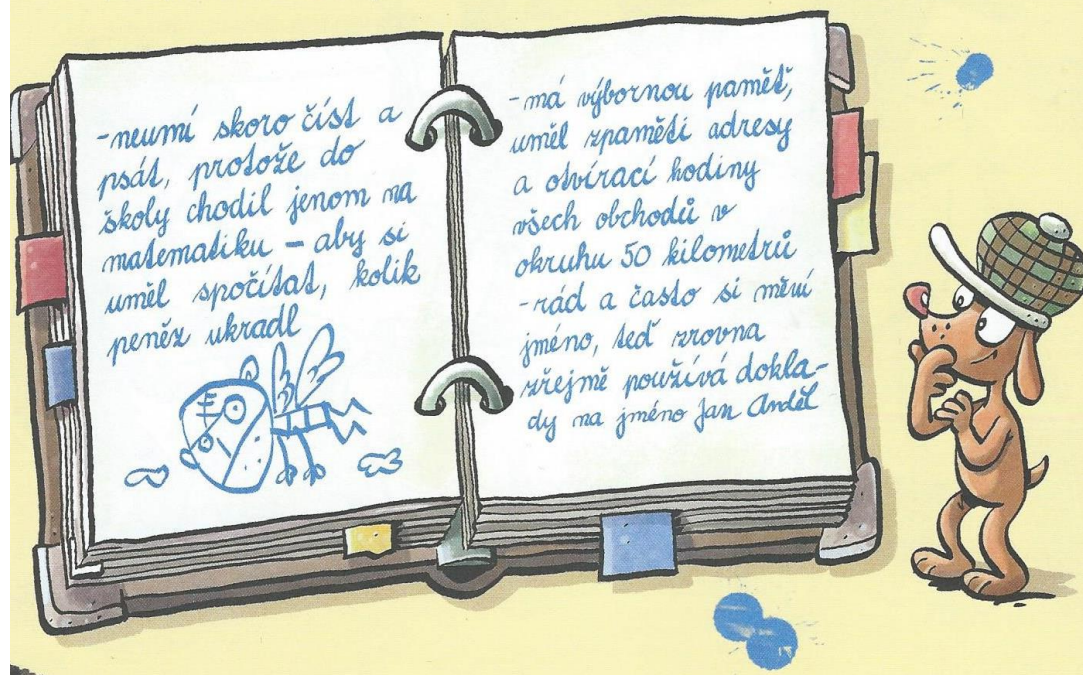 -neumí skoro číst a
psát, protože do
školy chodil jenom na
matematiku – aby si
uměl spočítat, kolik
peněz ukradl
-má výbornou paměť,
uměl zpaměti adresy
a otvírací hodiny
všech obchodů v
okruhu 50 kilometrů
-rád a často si mění
jméno, teď zrovna
zřejmě používá dokla-
dy na jméno Jan Anděl